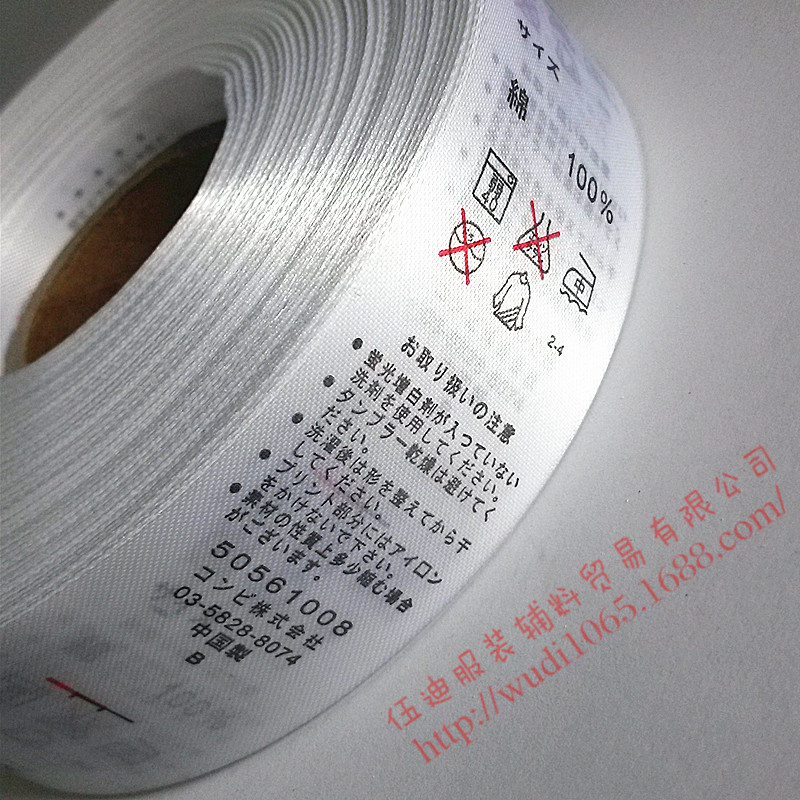 サイズ
綿 100%
弱
40
中
2-4
お取り扱いの注意
●蛍光増白剤が入っていない
洗剤を使用してください。
●タンブラー乾燥は避けてく
ださい。
●洗濯後は形を整えてから干
してください。
●プリント部分にはアイロン
をかけないで下さい。
●素材の性質上多少縮む場合
がございます。
50561008
コンビ株式会社
03-5828-8074
中国製
B
100%
伍迪服装辅料贸易有限公司
http://wudi1065.1688.com/